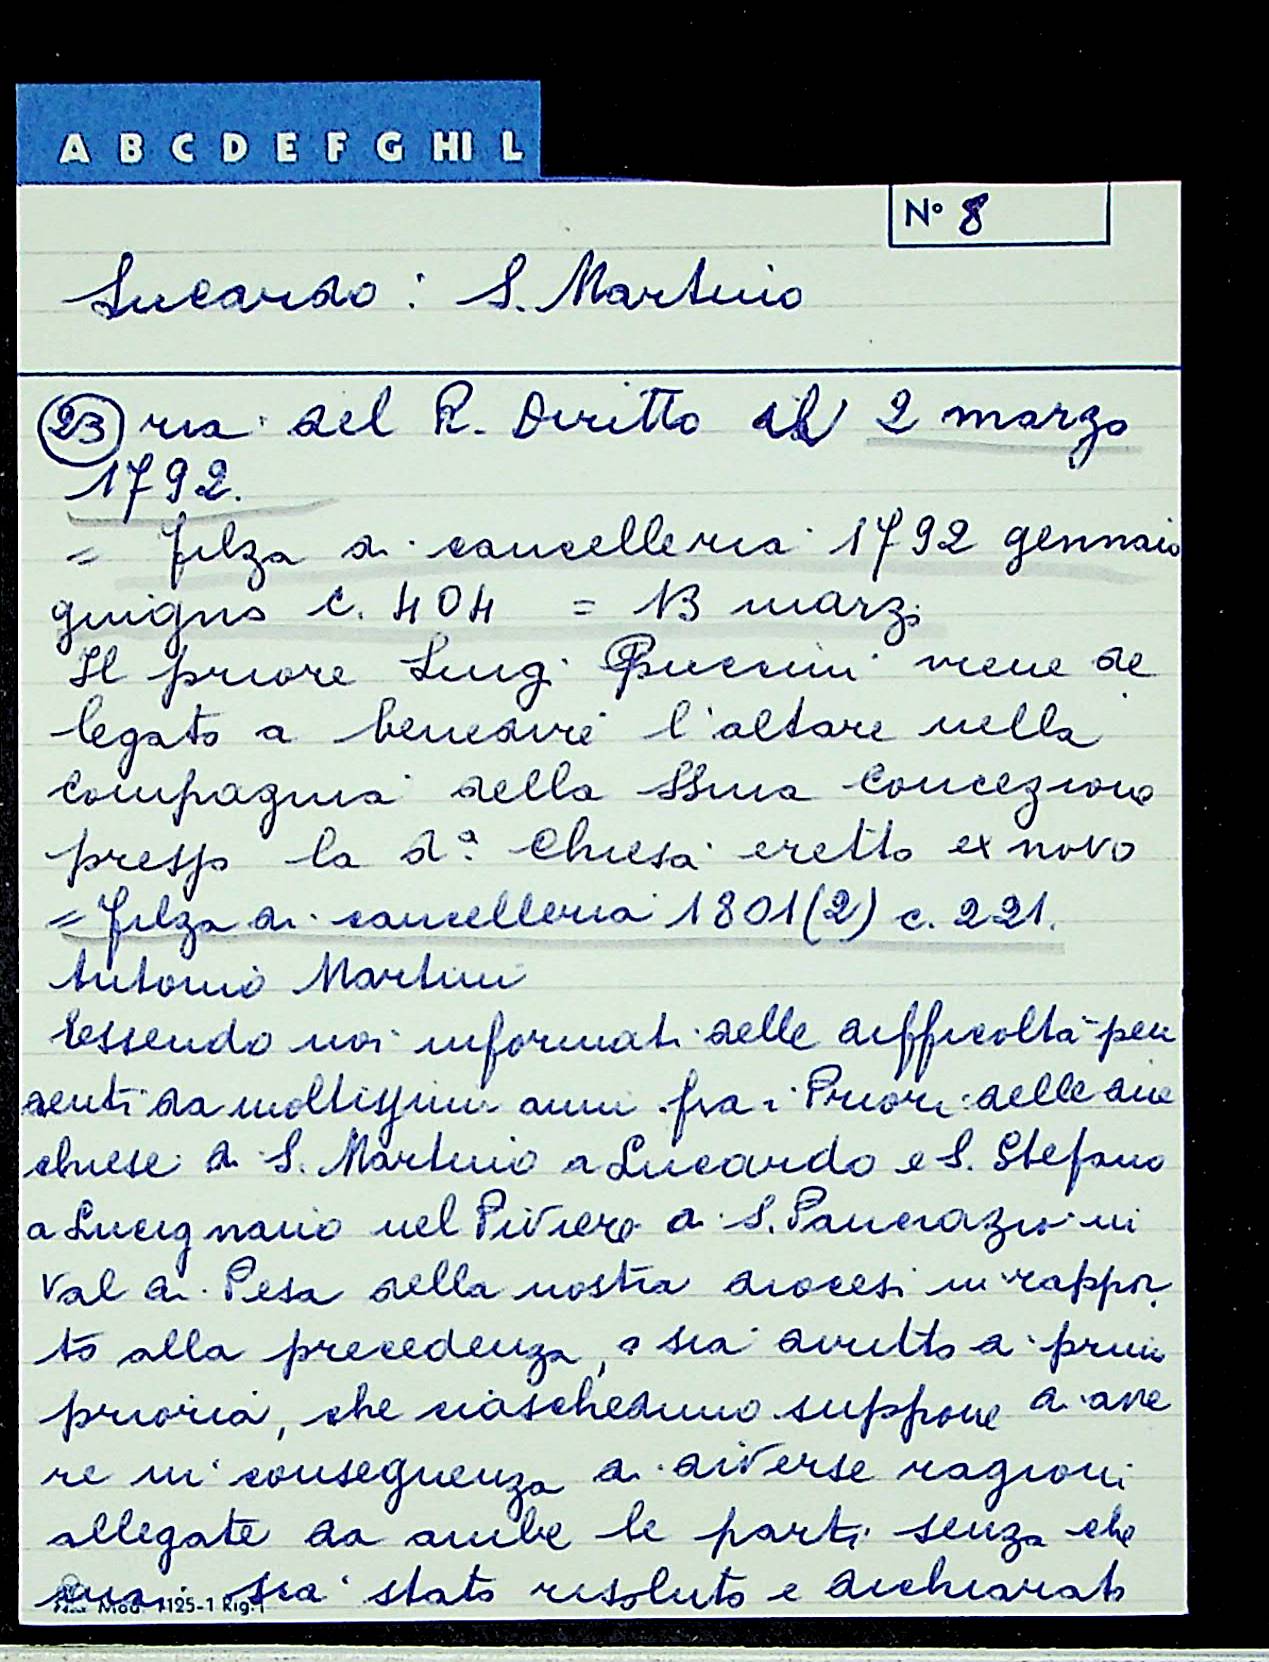 A B C D E F G HI L
N° 8
Lucardo: S. Martino
23 ria del R. Diritto il 2 marzo
1792.
= filza di cancelleria 1792 gennaio
giugno c. 404 = 13 marzo
Il priore Luigi Puccini viene de
legato a benedire l'altare nella
compagnia della SSma Concezione
presso la da: Chiesa eretto ex novo
= filza di cancelleria 1801(2) c. 221.
Antonio Martini
Essendo noi informati delle difficoltà pen
denti da moltissimi anni fra i Priori delle due
chiese di S. Martino a Lucardo e S. Stefano
a Lucignano nel Piviere di S. Pancrazio in
Val di Pesa della nostra diocesi in rappor
to alla precedenza, o sia diritto di primi
prioria, che ciascheduno suppone di ave
re in conseguenza di diverse ragioni
allegate da ambe le parti senza che
mai sia stato risoluto e dichiarato
Mod. 1125-1 Rig.